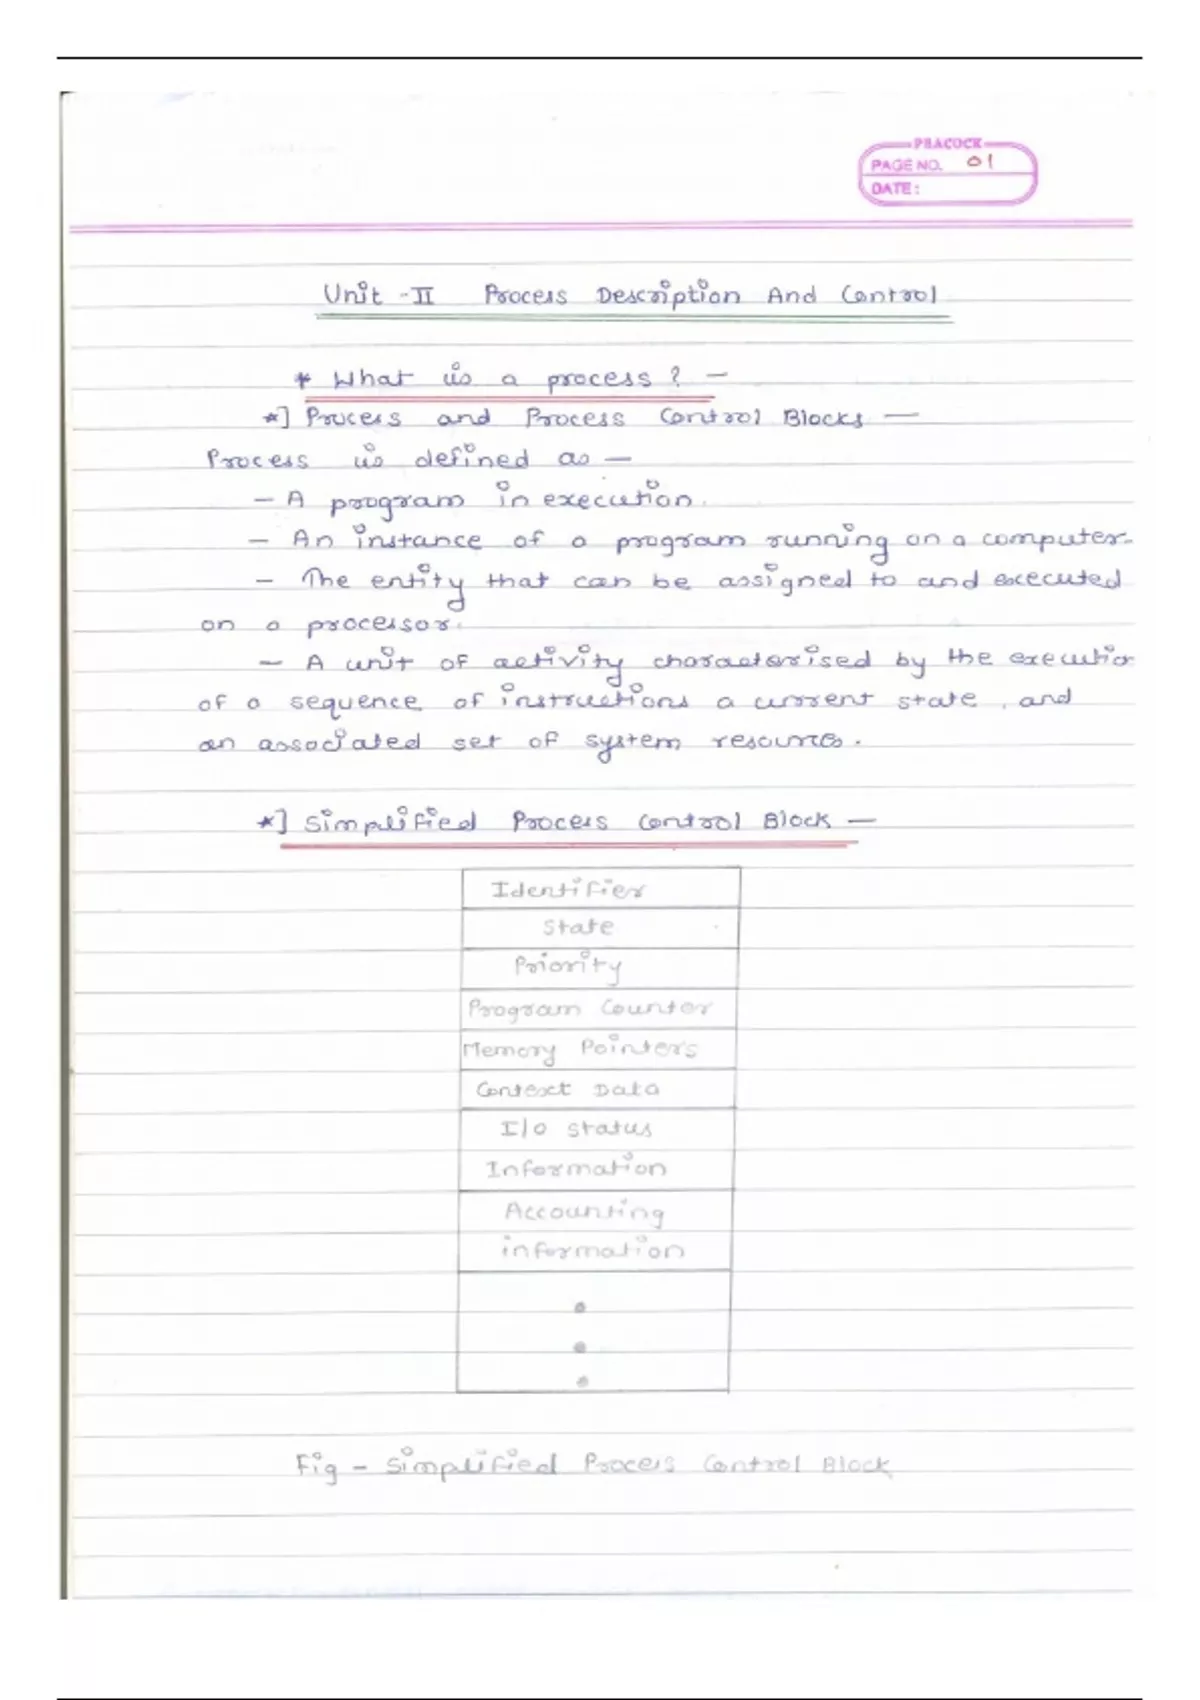 PEACOCK
PAGE NO. 01
DATE:
Unit - II Process Description And Control
* What is a process ? —
*] Process and Process Control Blocks —
Process is defined as —
— A program in execution.
— An instance of a program running on a computer.
— The entity that can be assigned to and executed
on a processor.
— A unit of activity characterised by the executio
of a sequence of instructions a current state, and
an associated set of system resources.
*] Simplified Process Control Block —
Identifier
State
Priority
Program Counter
Memory Pointers
Context Data
I/O status
Information
Accounting
information
Fig - Simplified Process Control Block